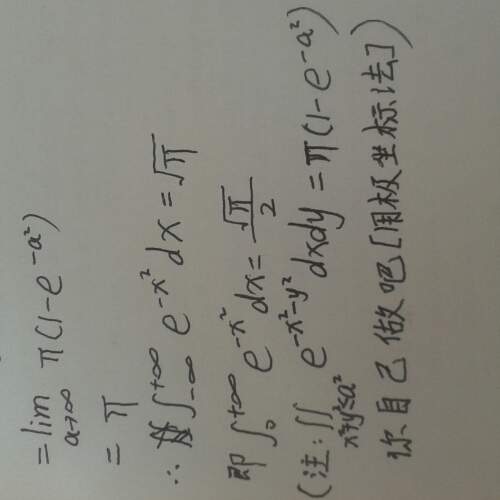 =lim π(1-e^{-a²})
a→∞
=π
∴ ∫_{-∞}^{+∞} e^{-x²}dx=√π
即∫_0^{+∞} e^{-x²}dx=√π/2
(注:∬_{x²+y²≤a²} e^{-x²-y²}dxdy=π(1-e^{-a²})
你自己做吧[用极坐标法])